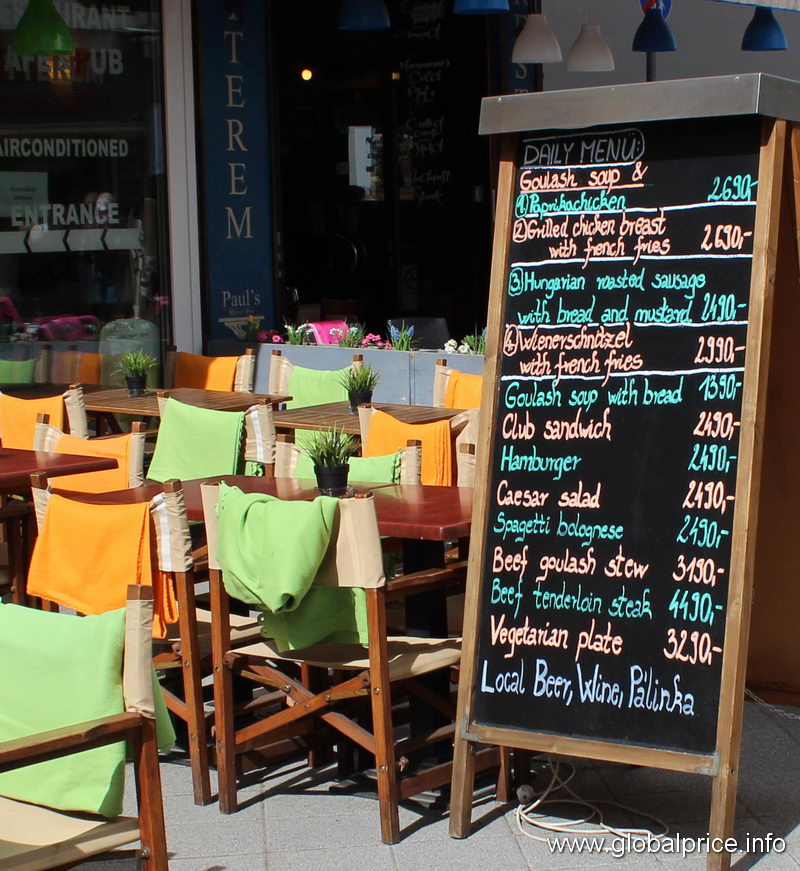 RESTAURANT
AFTERPUB
AIRCONDITIONED
ENTRANCE
TEREM
Paul's
DAILY MENU:
Goulash soup &
1 Paprikachicken 2690,-
2 Grilled chicken breast
with french fries 2690,-
3 Hungarian roasted sausage
with bread and mustard 2490,-
4 Wienerschnitzel
with french fries 2990,-
Goulash soup with bread 1390,-
Club sandwich 2490,-
Hamburger 2490,-
Caesar salad 2490,-
Spagetti bolognese 2490,-
Beef goulash stew 3190,-
Beef tenderloin steak 4490,-
Vegetarian plate 3290,-
Local Beer, Wine, Pálinka
www.globalprice.info